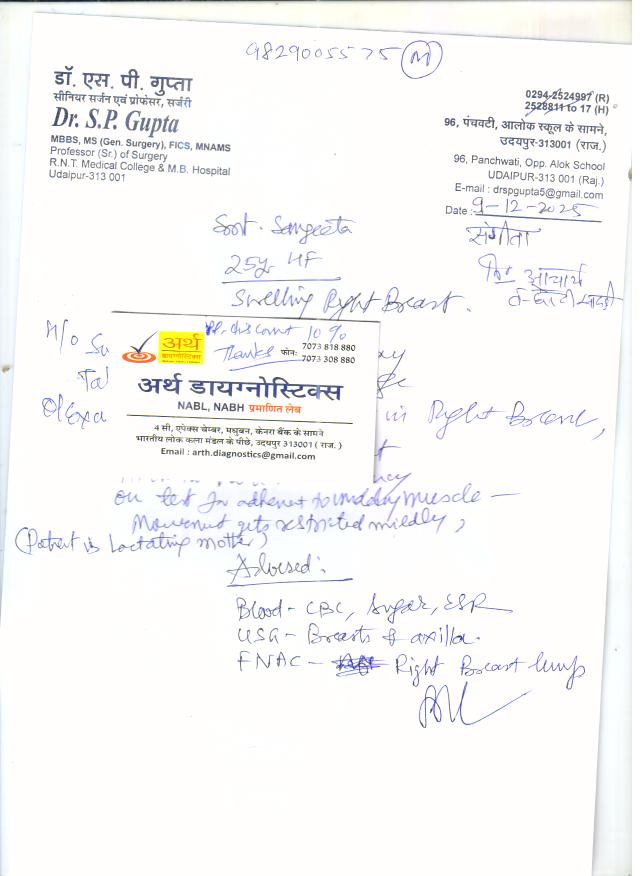 9829005575 (M)
डॉ. एस. पी. गुप्ता
सीनियर सर्जन एवं प्रोफेसर, सर्जरी
Dr. S.P. Gupta
MBBS, MS (Gen. Surgery), FICS, MNAMS
Professor (Sr.) of Surgery
R.N.T. Medical College & M.B. Hospital
Udaipur-313 001
0294-2524997 (R)
2528811 to 17 (H)
96, पंचवटी, आलोक स्कूल के सामने,
उदयपुर-313001 (राज.)
96, Panchwati, Opp. Alok School
UDAIPUR-313 001 (Raj.)
E-mail : drspgupta5@gmail.com
Date :- 9-12-2025
Smt. Sangeeta
संगीता
25y HF
आचार्य
Swelling Right Breast.
H/o Su
Ta
O/Exa
in Right Breast,
Pl. discount 10%
Thanks
अर्थ
डायग्नोस्टिक्स
फोन: 7073 818 880
7073 308 880
अर्थ डायग्नोस्टिक्स
NABL, NABH प्रमाणित लेब
4 सी, एपेक्स चेम्बर, मधुबन, केनरा बैंक के सामने
भारतीय लोक कला मंडल के पीछे, उदयपुर 313001 ( राज. )
Email : arth.diagnostics@gmail.com
on test for adherent to muscle –
Movement gets restricted mildly,
(Patient is Lactating mother)
Advised:
Blood - CBC, Sugar, ESR
USG - Breasts & axilla.
FNAC - Right Breast lump